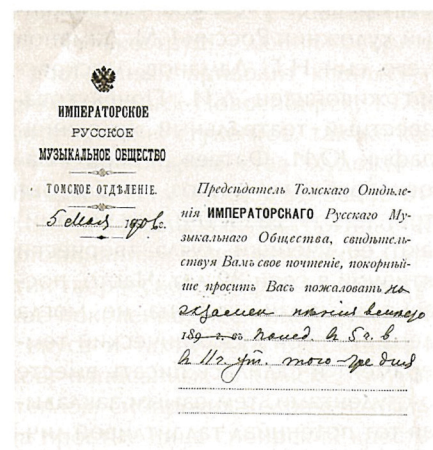 ИМПЕРАТОРСКОЕ
РУССКОЕ
МУЗЫКАЛЬНОЕ ОБЩЕСТВО
ТОМСКОЕ ОТДѢЛЕНІЕ.
5 Мая
Предсѣдатель Томскаго Отдѣле-
нія ИМПЕРАТОРСКАГО Русскаго Му-
зыкальнаго Общества, свидѣтель-
ствуя Вамъ свое почтеніе, покорнѣй-
ше проситъ Васъ пожаловать на
экзамен пѣнія
189 г. въ 5 г. в
в 11 г. ут. того-же дня